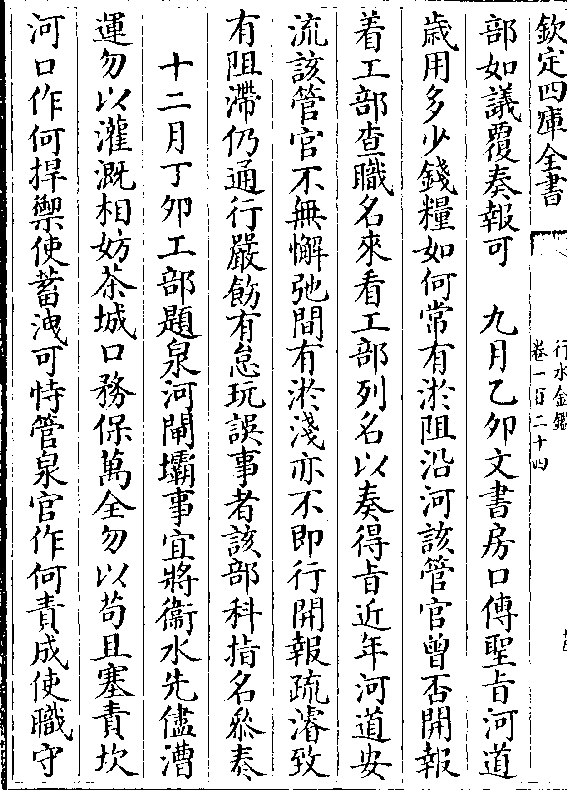 欽定四庫全書
行水金鑑
卷一百二十四
部如議覆奏報可　九月乙卯文書房口傳聖旨河道
歲用多少錢糧如何常有淤阻沿河該管官曾否開報
着工部查職名來看工部列名以奏得旨近年河道安
流該管官不無懈弛間有淤淺亦不即行開報疏濬致
有阻滯仍通行嚴飭有怠玩誤事者該部科指名叅奏
十二月丁卯工部題泉河閘壩事宜將衞水先儘漕
運勿以灌溉相妨茶城口務保萬全勿以苟且塞責坎
河口作何捍禦使蓄洩可恃管泉官作何責成使職守